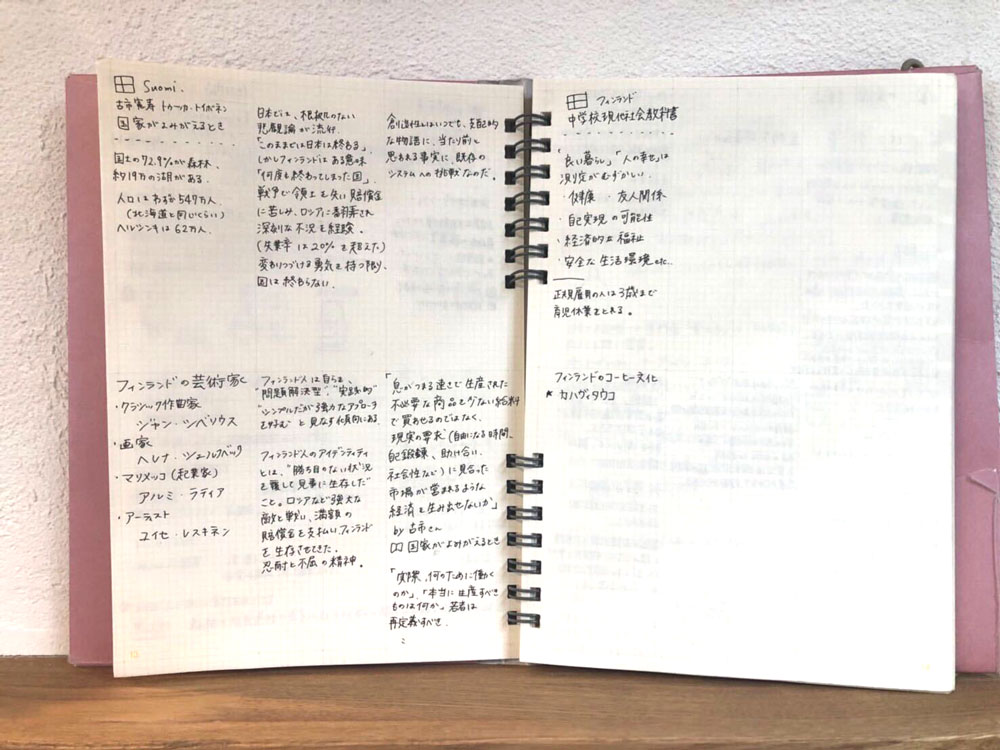 Suomi.
古市憲寿 トゥーッカ・トイボネン
国家がよみがえるとき
国土の72.9%が森林、
約19万の湖がある。
人口はわずか549万人、
(北海道と同じくらい)
ヘルシンキは62万人.
日本では、根拠のない
悲観論が流行.
「このままでは日本は終わる」、
しかしフィンランドはある意味
「何度も終わってしまった国」.
戦争で領土を失い賠償金
に苦しみ、ロシアに翻弄され
深刻な不況を経験。
(失業率は20%を超えた)
変わりつづける勇気を持つ限り、
国は終わらない.
創造性とはいつでも、支配的
な物語に、当たり前と
思われる事実に、既存の
システムへの挑戦なのだ。
フィンランドの芸術家く
・クラシック作曲家
ジャン・シベリウス
・画家
ヘレナ・シェルフベック
・マリメッコ(起業家)
アルミ・ラティア
・アーティスト
ユイセ・レスキネン
フィンランド人は自らを、
"問題解決型"、"実践的"
"シンプルだが強力なアプローチ
を好む"と見なす傾向にある.
フィンランド人のアイデンティティ
とは、"勝ち目のない状況
を覆して見事に生存した"
こと。ロシアなど強大な
敵と戦い、満額の
賠償金を支払い、フィンランド
を生存させてきた。
忍耐と不屈の精神。
「息がつまる速さで生産された
不必要な商品を少ない給料
で買わせるのではなく、
現実の要求(自由になる時間、
自己鍛錬、助け合い、
社会性など)に見合った
市場が営まれるような
経済を生み出せないか」
by 古市さん
国家がよみがえるとき
「実際、何のために働く
のか」、「本当に生産すべき
ものは何か」若者は
再定義すべき.
フィンランド
中学校現代社会教科書
「良い暮らし」「人の幸せ」は
測定がむずかしい.
・健康 ・友人関係
・自己実現の可能性
・経済的な福祉
・安全な生活環境 etc..
正規雇用の人は3歳まで
育児休業をとれる。
フィンランドのコーヒー文化
★ カハヴィタウコ